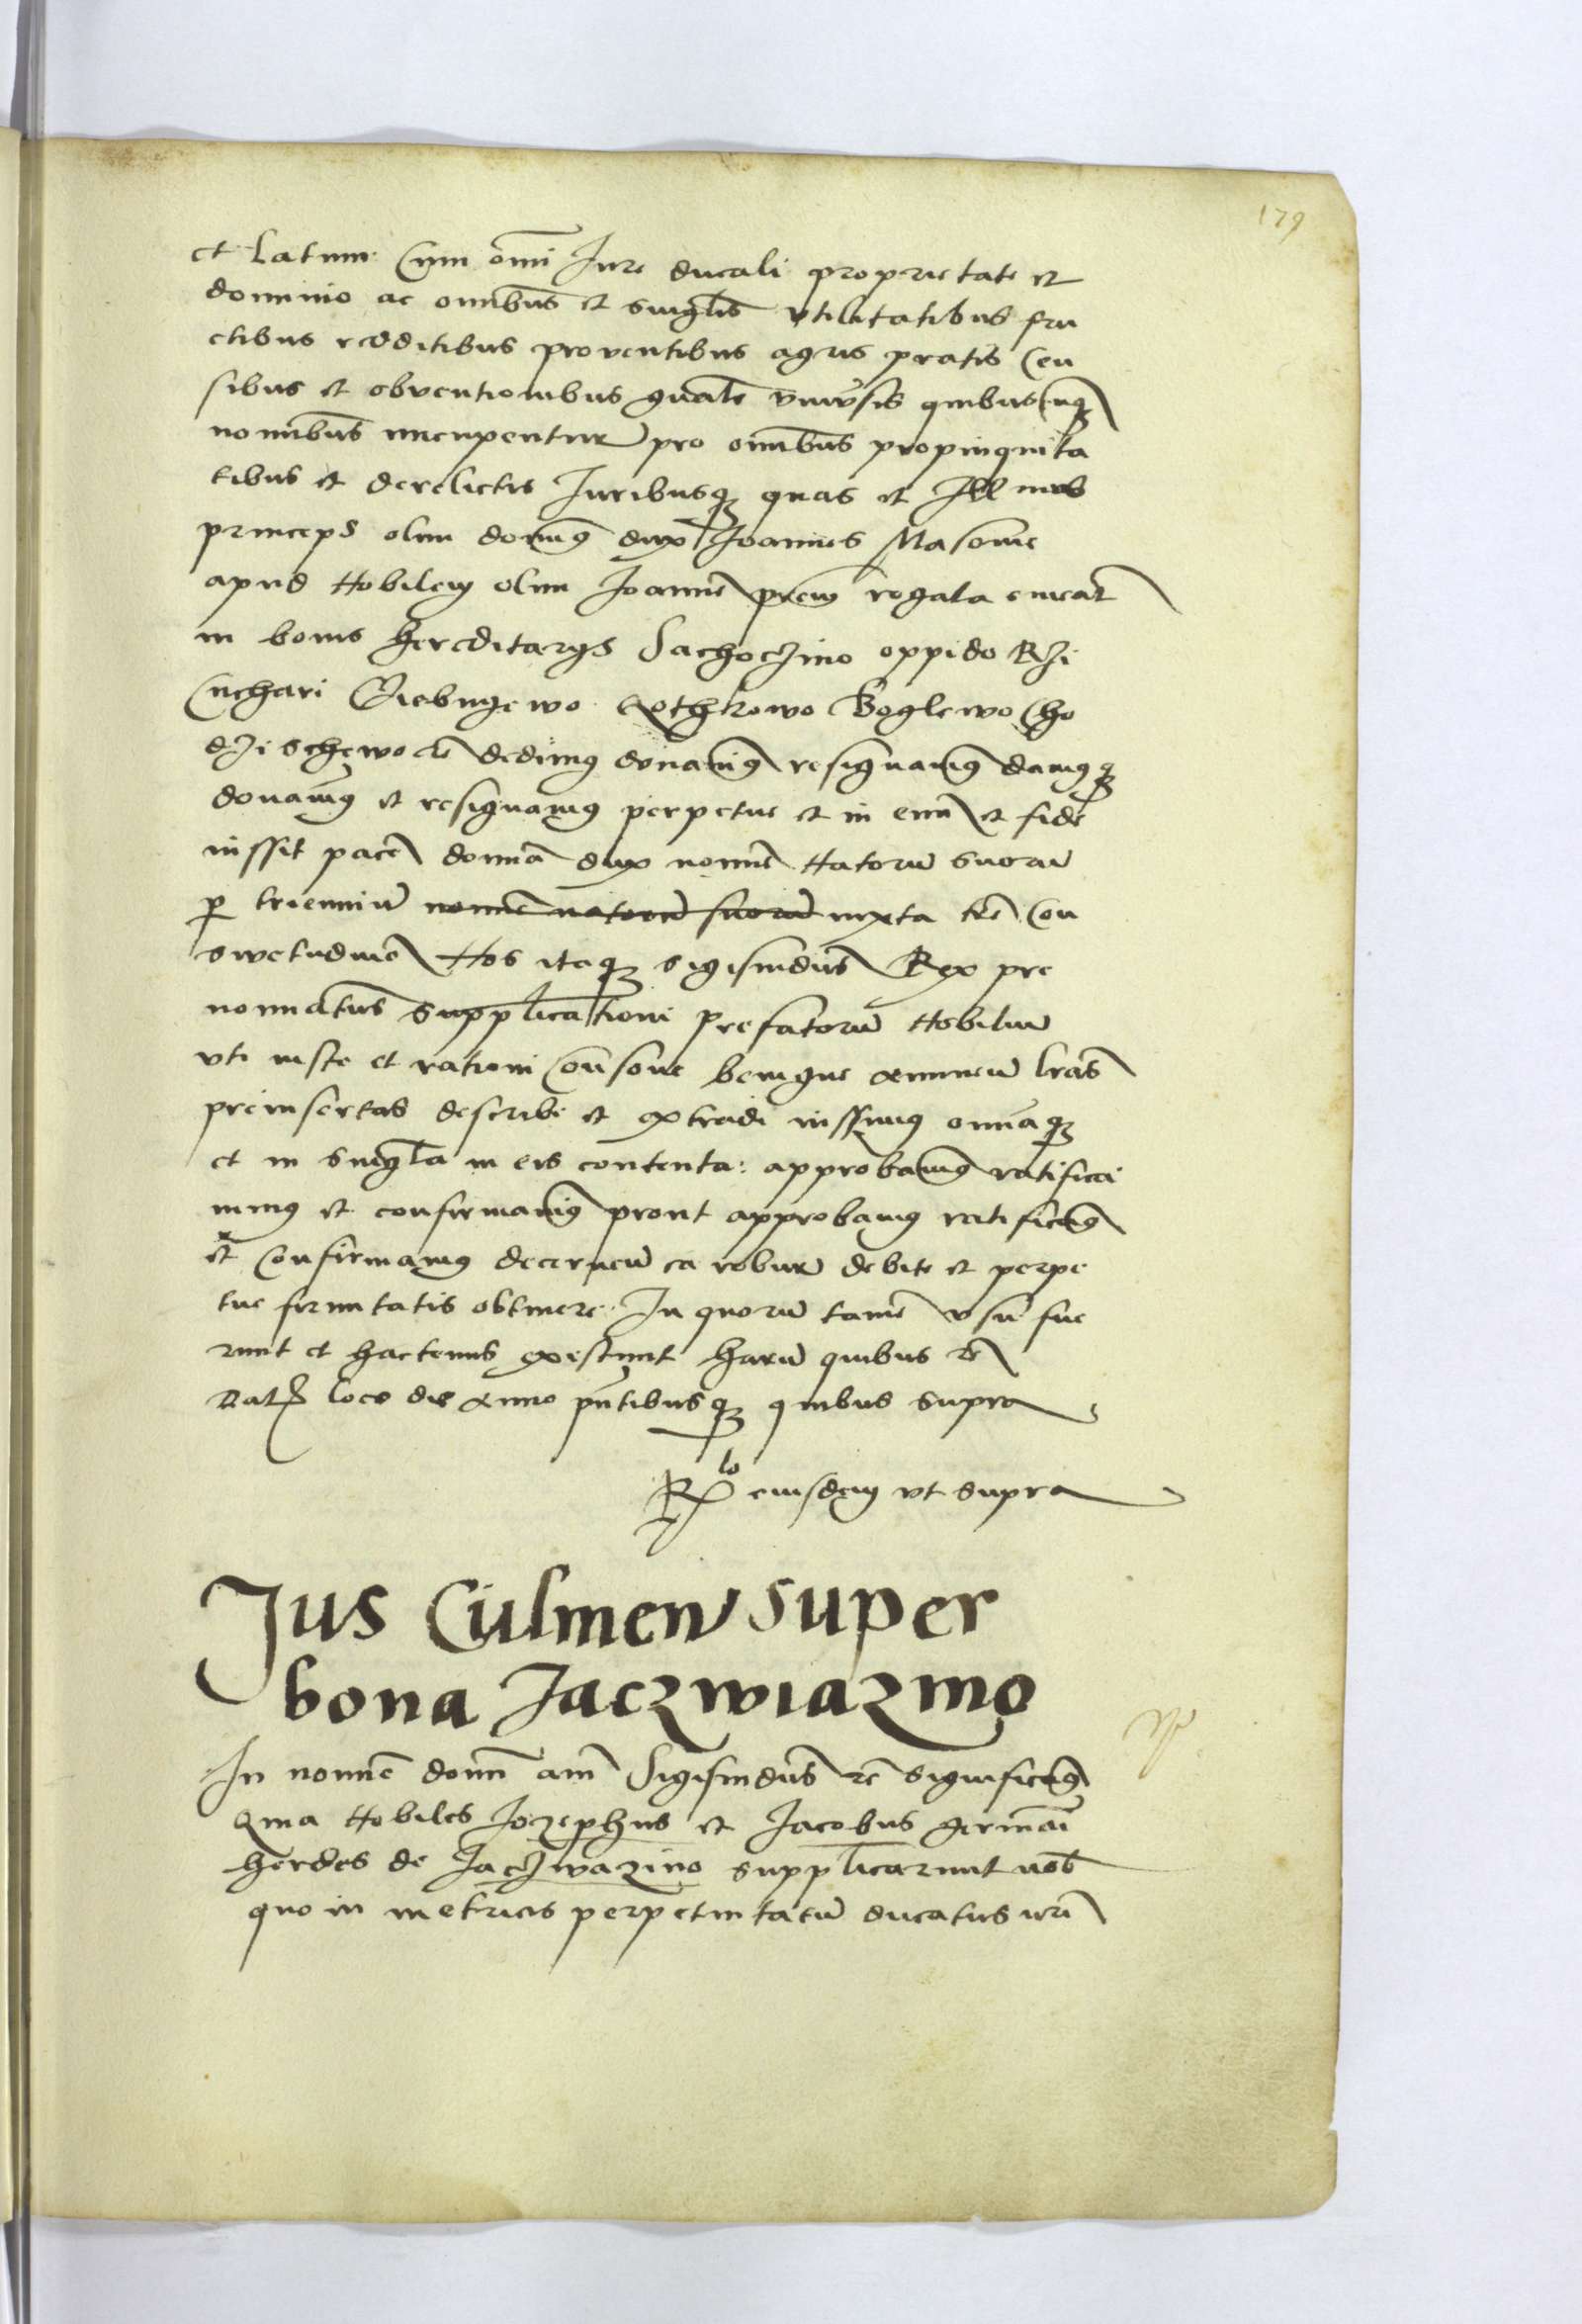 179
et latum Cum omi Jure ducali proprietate et
dominio ac omibus et singlis vtilitatibus fru
ctibus redditibus proventibus agris pratis Cen
sibus et obventionibus gnale vniusis quibuscunq
nomibus nuncupentur pro omibus propinquita
tibus et derelictis Juribusq quas et Ill mus
princeps olim domius dux Joannes Masouie
apud Nobilem olim Joanne prem rogata
in bonis hereditarys Sachoczino oppido Rzi
Cuchari Boglewo Cho
dzischewo etc dedimus donauimus resignauimus damusq
donamus et resignamus perpetue et in et fide
iussit pace domia dux nomie Natoru suoru
p trienniu nomie natoru suoru iuxta tre Con
swetudine Nos itaq sigismdus Rex pre
nomiatus supplicationi prefatoru Nobiliu
vti iuste et rationi Consone benigne annuen lras
preinsertas describi et extradi iussimus omiaq
et in singla in eis contenta: approbauimus ratifica
uimus et confirmauimus prout approbamus ratificamus
et Confirmamus decernen ea robur debite et perpe
tue firmitatis obtinere In quoru tame vsu fue
runt et hactenus existunt haru quibus etc
Dat loco die Anno pntibusq quibus supra
Rlo eiusdem vt supra
Jus Culmen super
bona Jaczwiazino
In nomie domi am Sigismdus etc significamus
Quia Nobiles Jozephus et Jacobus germai
herdes de Jaczwazino supplicarunt nob
quo in metricis perpetuitatum ducatus nri